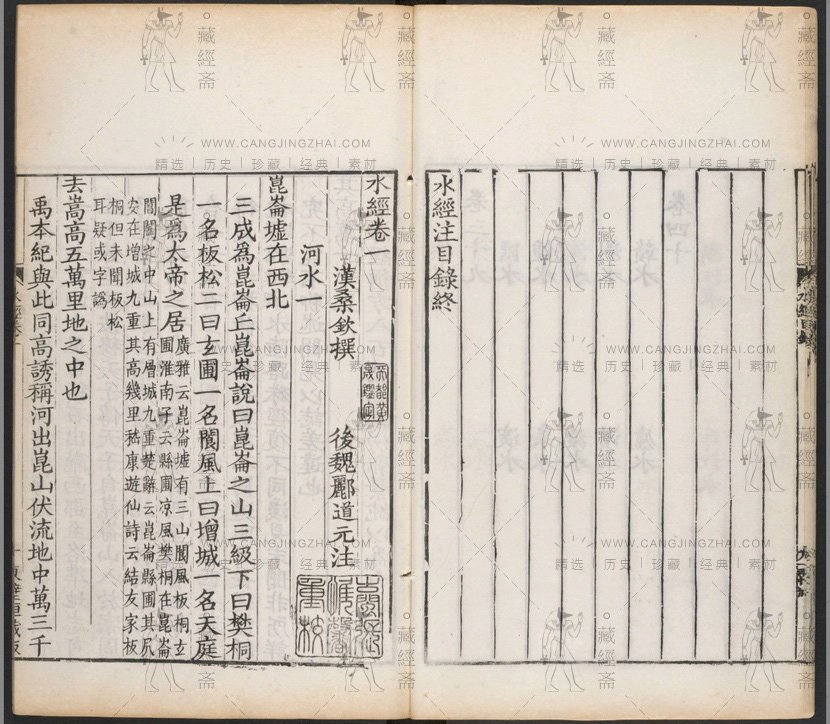 水經注目錄終
水經卷一
漢桑欽撰 後魏酈道元注
河水一
崑崙墟在西北
三成爲崑崙丘崑崙說曰崑崙之山三級下曰樊桐
一名板松二曰玄圃一名閬風上曰增城一名天庭
是爲太帝之居廣雅云崑崙墟有三山閬風板桐玄
圃淮南子云縣圃涼風樊桐在崑崙
閶闔之中山上有層城九重楚辭云崑崙縣圃其尻
安在增城九重其高幾里嵇康遊仙詩云結友家板
桐但未聞板松
耳疑或字譌
去嵩高五萬里地之中也
禹本紀與此同高誘稱河出崑山伏流地中萬三千
藏經斋
WWW.CANGJINGZHAI.COM
精选 | 历史 | 珍藏 | 经典 | 素材